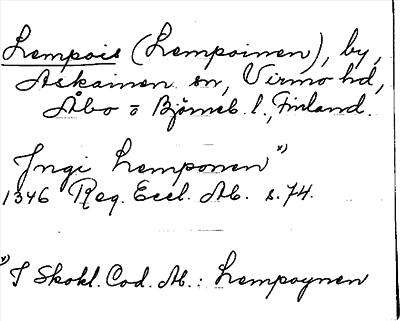 Lempois (Lempoinen), by,
Askainen sn, Virmo hd,
Åbo o Björneb. l., Finland.
Ingi Lemponen *)
1346 Reg. Eccl. Ab. s. 74.
*) I Skokl. Cod. Ab.: Lempoynen